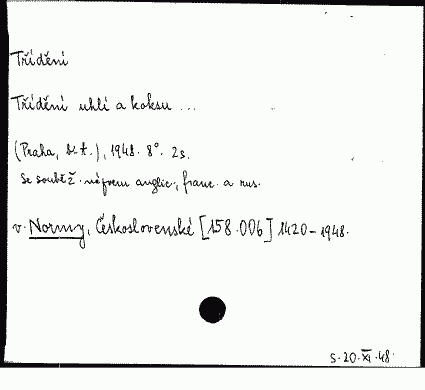 Třídění
Třídění uhlí a koksu ...
(Praha, b. t.), 1948. 8°. 2 s.
Se souběž. nápisem anglic., franc. a rus.
v. Normy, Československé [158.006] 1420-1948.
S. 20. XI. 48.